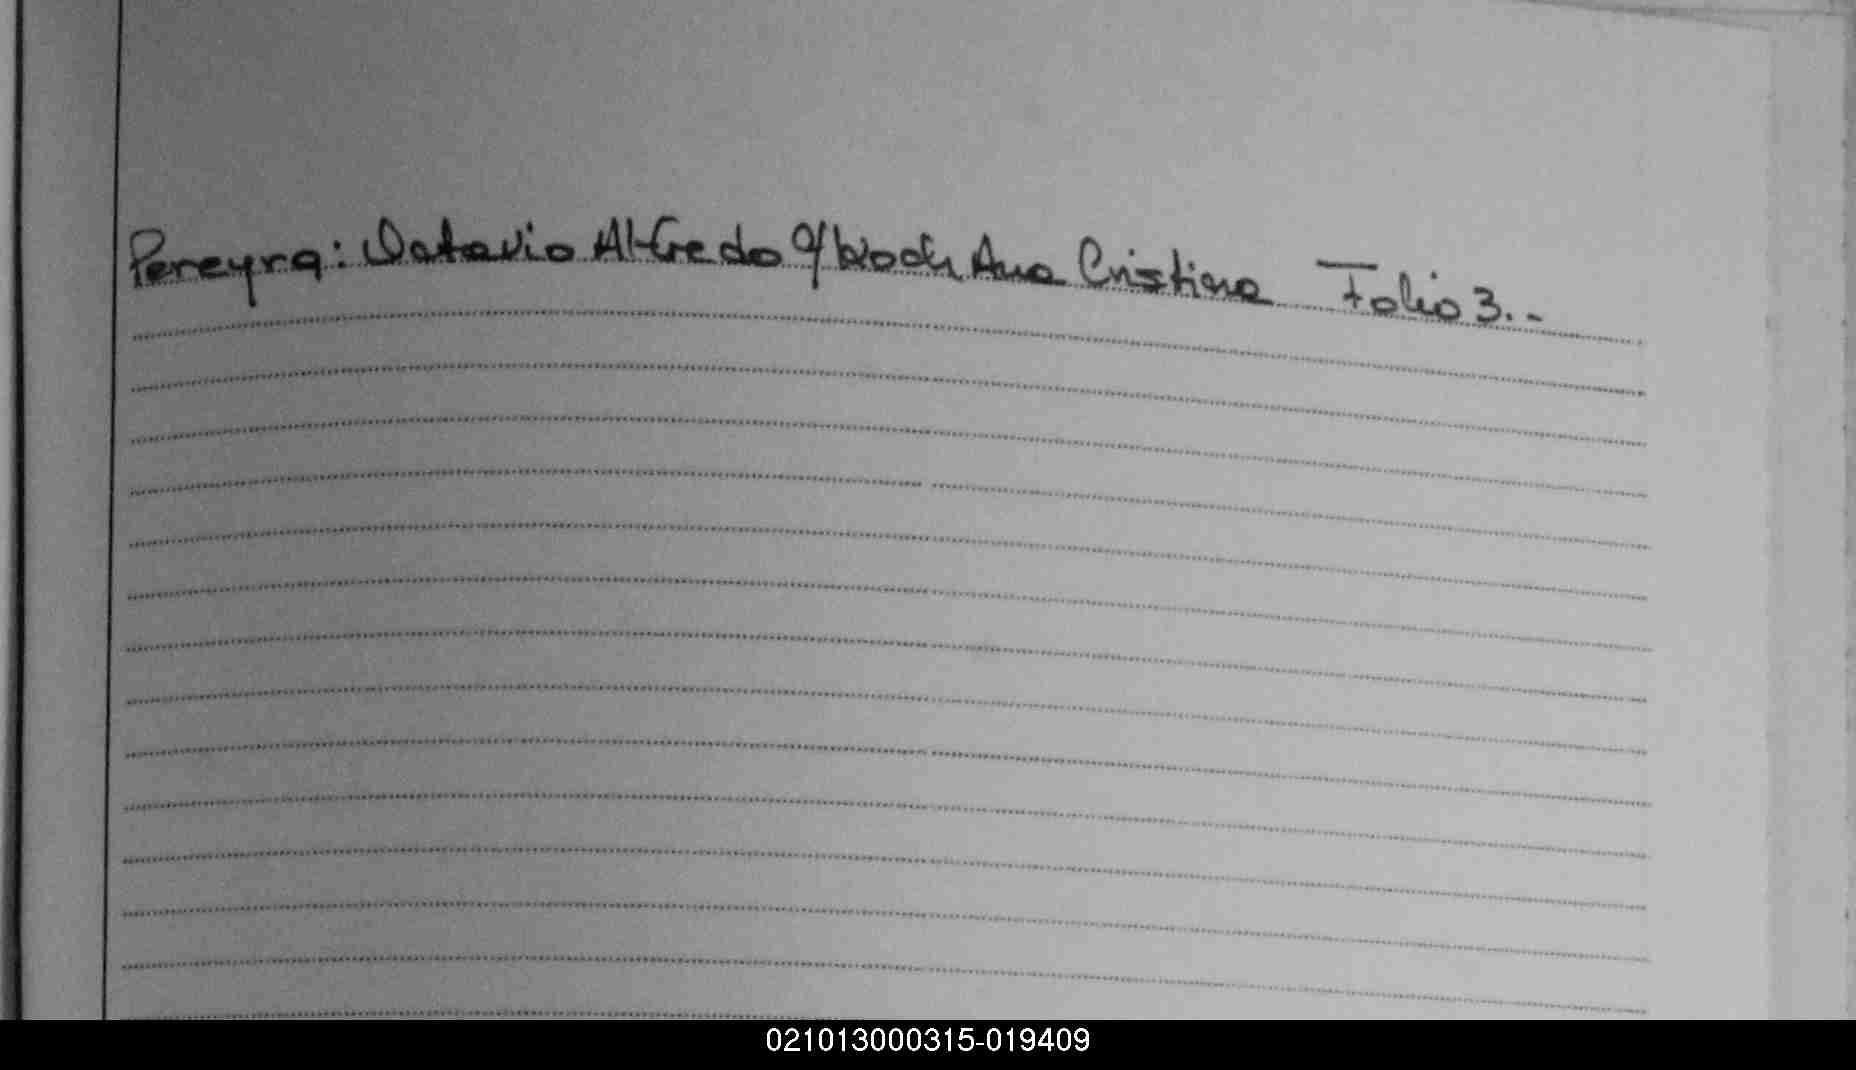 Pereyra: Octavio Alfredo c/ Woch Ana Cristina Folio 3..-
021013000315-019409